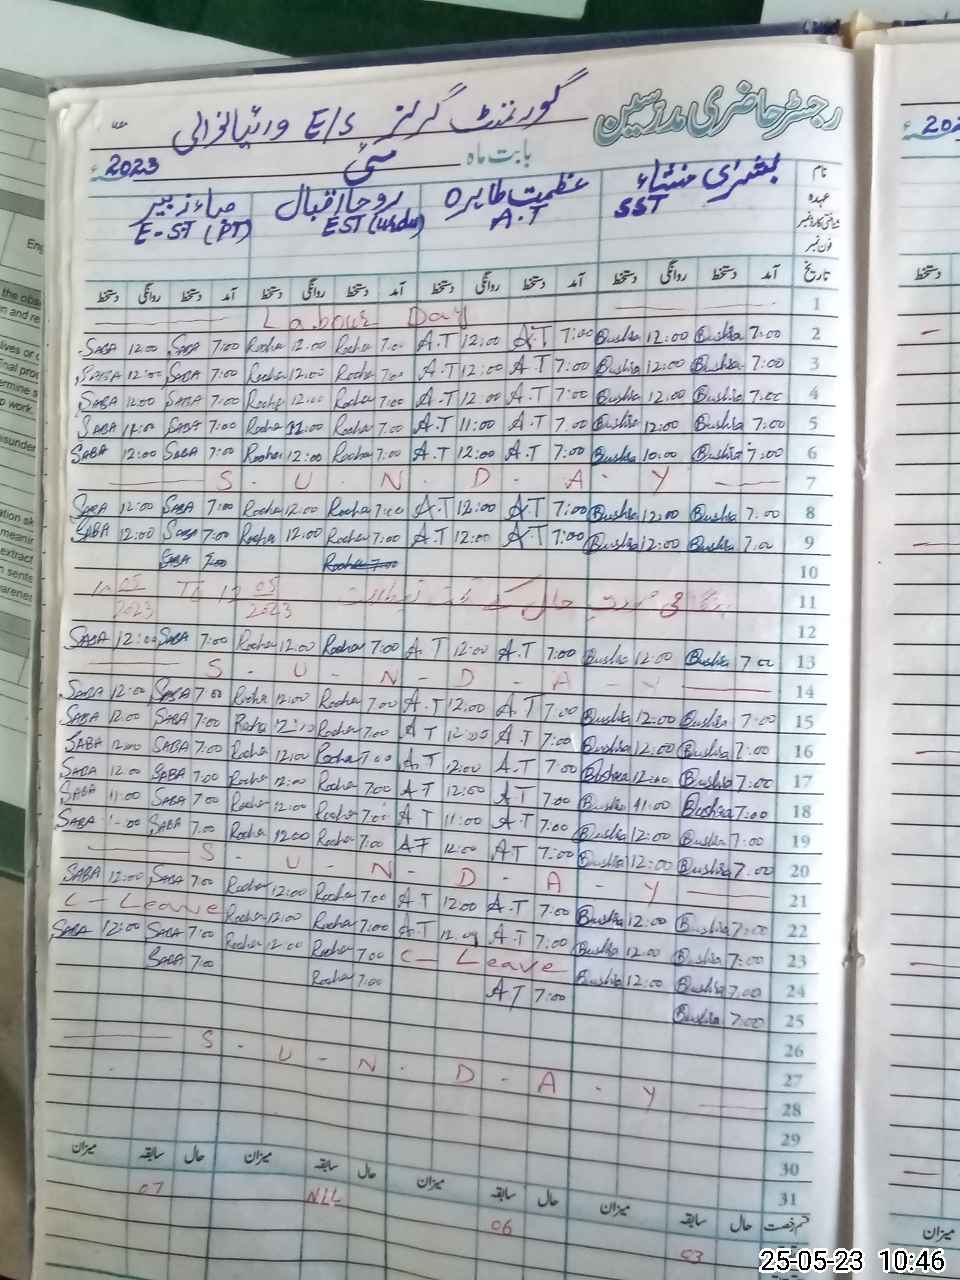 رجسٹر حاضری مدرسین گورنمنٹ گرلز E/S
بابت ماہ مئی 2023ء
نام بشریٰ منشاء عظمت طاہرہ روحا اقبال صباء زبیر
عہدہ SST A.T EST (urdu) E-ST (PT)
فون نمبر
تاریخ آمد دستخط روانگی دستخط آمد دستخط روانگی دستخط آمد دستخط روانگی دستخط آمد دستخط روانگی دستخط
1 Labour Day
2 7:00 Bushra 12:00 Bushra 7:00 A.T 12:00 A.T 7:00 Rocha 12:00 Rocha 7:00 SABA 12:00 SABA
3 7:00 Bushra 12:00 Bushra 7:00 A.T 12:00 A.T 7:00 Rocha 12:00 Rocha 7:00 SABA 12:00 SABA
4 7:00 Bushra 12:00 Bushra 7:00 A.T 12:00 A.T 7:00 Rocha 12:00 Rocha 7:00 SABA 12:00 SABA
5 7:00 Bushra 12:00 Bushra 7:00 A.T 11:00 A.T 7:00 Rocha 11:00 Rocha 7:00 SABA 11:00 SABA
6 7:00 Bushra 10:00 Bushra 7:00 A.T 12:00 A.T 7:00 Rocha 12:00 Rocha 7:00 SABA 12:00 SABA
7 S - U - N - D - A - Y
8 7:00 Bushra 12:00 Bushra 7:00 A.T 12:00 A.T 7:00 Rocha 12:00 Rocha 7:00 SABA 12:00 SABA
9 7:00 Bushra 12:00 Bushra 7:00 A.T 12:00 A.T 7:00 Rocha 12:00 Rocha 7:00 SABA 12:00 SABA
10 Rocha 7:00 SABA 7:00
11 05/2023 To 12 05/2023
12
13 7:00 Bushra 12:00 Bushra 7:00 A.T 12:00 A.T 7:00 Rocha 12:00 Rocha 7:00 SABA 12:00 SABA
14 S - U - N - D - A - Y
15 7:00 Bushra 12:00 Bushra 7:00 A.T 12:00 A.T 7:00 Rocha 12:00 Rocha 7:00 SABA 12:00 SABA
16 7:00 Bushra 12:00 Bushra 7:00 A.T 12:00 A.T 7:00 Rocha Rocha 7:00 SABA 12:00 SABA
17 7:00 Bushra 12:00 Bushra 7:00 A.T 12:00 A.T 7:00 Rocha 12:00 Rocha 7:00 SABA 12:00 SABA
18 7:00 Bushra 11:00 Bushra 7:00 A.T 12:00 A.T 7:00 Rocha 12:00 Rocha 7:00 SABA 12:00 SABA
19 7:00 Bushra 12:00 Bushra 7:00 A.T 11:00 A.T 7:00 Rocha 12:00 Rocha 7:00 SABA 11:00 SABA
20 7:00 Bushra 12:00 Bushra 7:00 A.T 12:00 A.T 7:00 Rocha 12:00 Rocha 7:00 SABA SABA
21 S - U - N - D - A - Y
22 7:00 Bushra 12:00 Bushra 7:00 A.T 12:00 A.T 7:00 Rocha 12:00 Rocha 7:00 SABA 12:00 SABA
23 7:00 Bushra 12:00 Bushra 7:00 A.T A.T 7:00 Rocha 12:00 Rocha C - Leave
24 7:00 Bushra 12:00 Bushra C - Leave 7:00 Rocha 12:00 Rocha 7:00 SABA 12:00 SABA
25 7:00 Bushra 7:00 A.T 7:00 Rocha 7:00 SABA
26
27
28 S - U - N - D - A - Y
29
30
31
قسم رخصت حال سابقہ میزان حال سابقہ میزان حال سابقہ میزان حال سابقہ میزان
53 06 NIL 07
202
دستخط
میزان
25-05-23 10:46